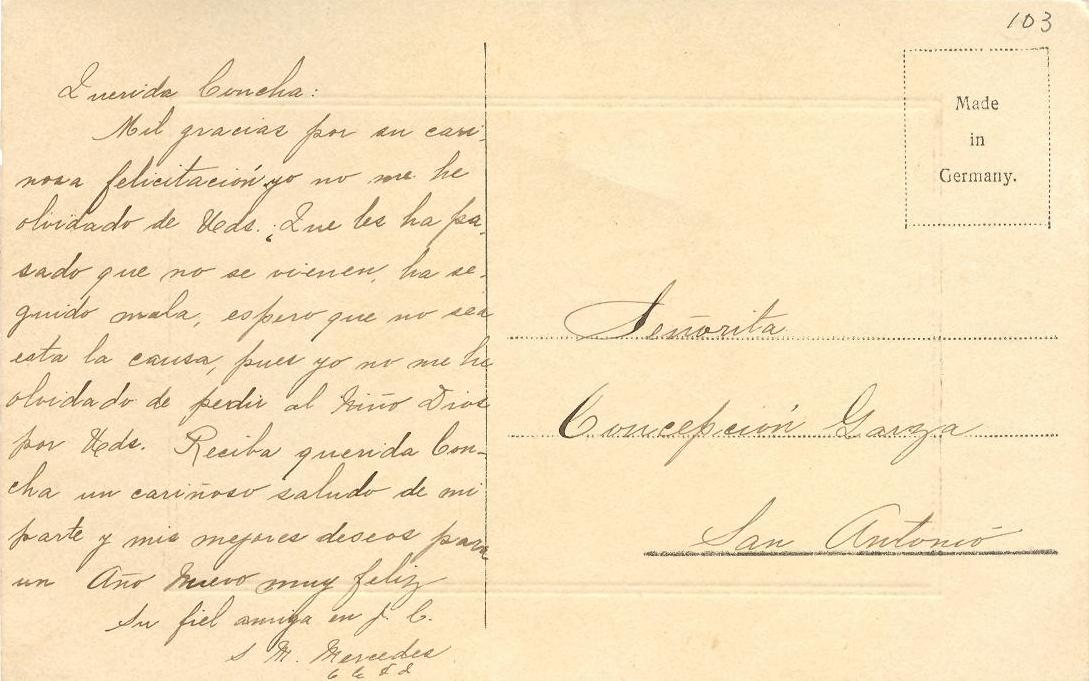 103
Querida Concha:
Mil gracias por su cari-
nosa felicitación yo no me he
olvidado de Uds. ¿Que les ha pa-
sado que no se vienen, ha se-
guido mala, espero que no sea
esta la causa, pues yo no me he
olvidado de pedir al Niño Dios
por Uds. Reciba querida Con-
cha un cariñoso saludo de mi
parte y mis mejores deseos para
un Año Nuevo muy feliz
Su fiel amiga en J. C.
S M. Mercedes
Made
in
Germany.
Señorita
Concepción Garza
San Antonio